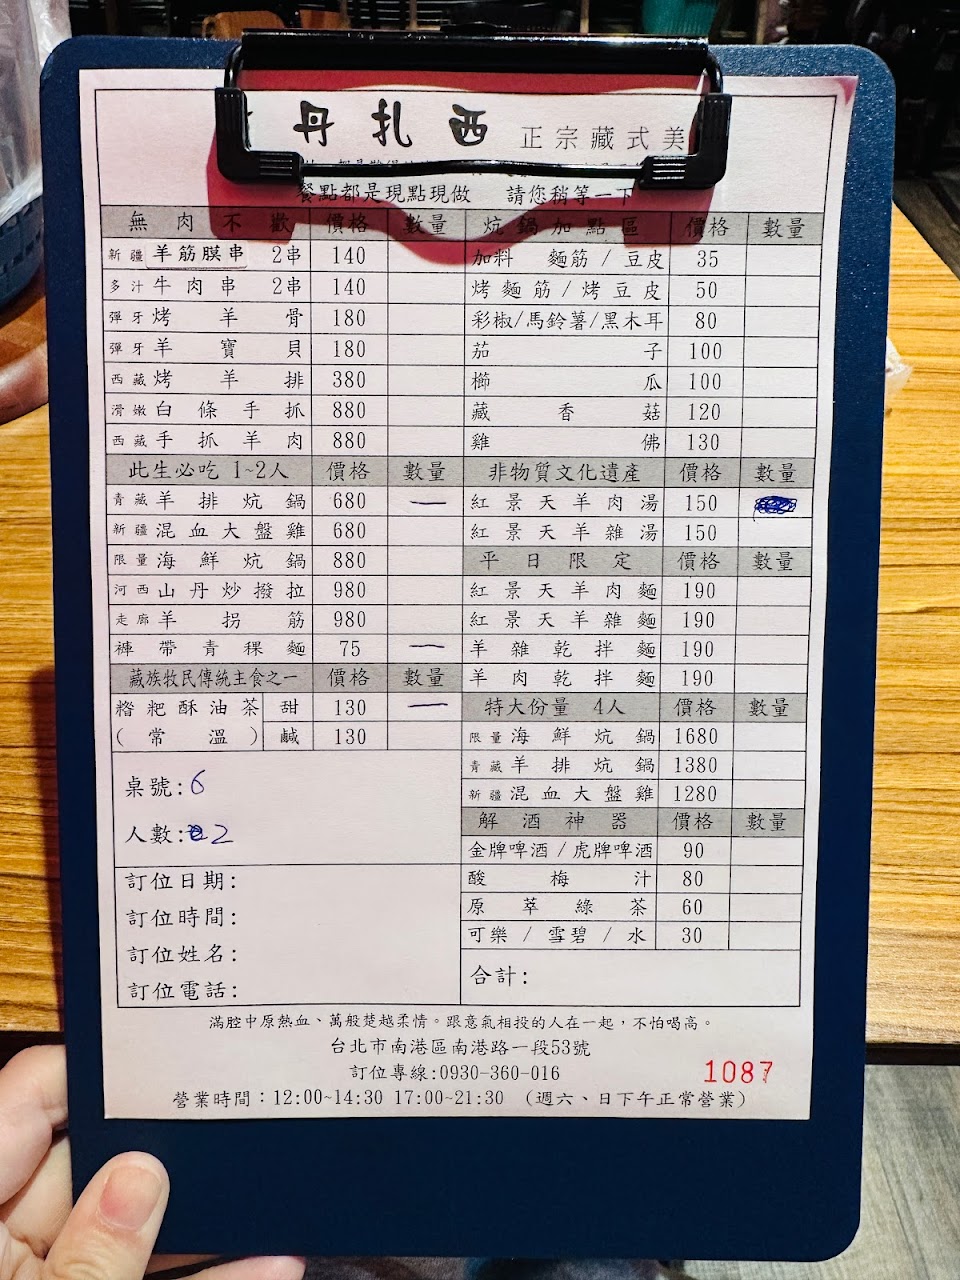 丹扎西 正宗藏式美
餐點都是現點現做 請您稍等一下
無肉不歡 價格 數量
新疆 羊筋膜串 2串 140
多汁 牛肉串 2串 140
彈牙 烤羊骨 180
彈牙 羊寶貝 180
西藏 烤羊排 380
滑嫩 白條手抓 880
西藏 手抓羊肉 880
此生必吃 1~2人 價格 數量
青藏 羊排炕鍋 680 一
新疆 混血大盤雞 680
限量 海鮮炕鍋 880
河西 山丹炒撥拉 980
走廊 羊拐筋 980
褲帶青稞麵 75 一
藏族牧民傳統主食之一 價格 數量
糌粑酥油茶 甜 130 一
(常溫) 鹹 130
桌號:6
人數:2
訂位日期:
訂位時間:
訂位姓名:
訂位電話:
炕鍋加點區 價格 數量
加料 麵筋/豆皮 35
烤麵筋/烤豆皮 50
彩椒/馬鈴薯/黑木耳 80
茄子 100
櫛瓜 100
藏香菇 120
雞佛 130
非物質文化遺產 價格 數量
紅景天羊肉湯 150
紅景天羊雜湯 150
平日限定 價格 數量
紅景天羊肉麵 190
紅景天羊雜麵 190
羊雜乾拌麵 190
羊肉乾拌麵 190
特大份量 4人 價格 數量
限量 海鮮炕鍋 1680
青藏 羊排炕鍋 1380
新疆 混血大盤雞 1280
解酒神器 價格 數量
金牌啤酒/虎牌啤酒 90
酸梅汁 80
原萃綠茶 60
可樂/雪碧/水 30
合計:
滿腔中原熱血、萬般楚越柔情。跟意氣相投的人在一起，不怕喝高。
台北市南港區南港路一段53號
訂位專線:0930-360-016
1087
營業時間：12:00~14:30 17:00~21:30 (週六、日下午正常營業)